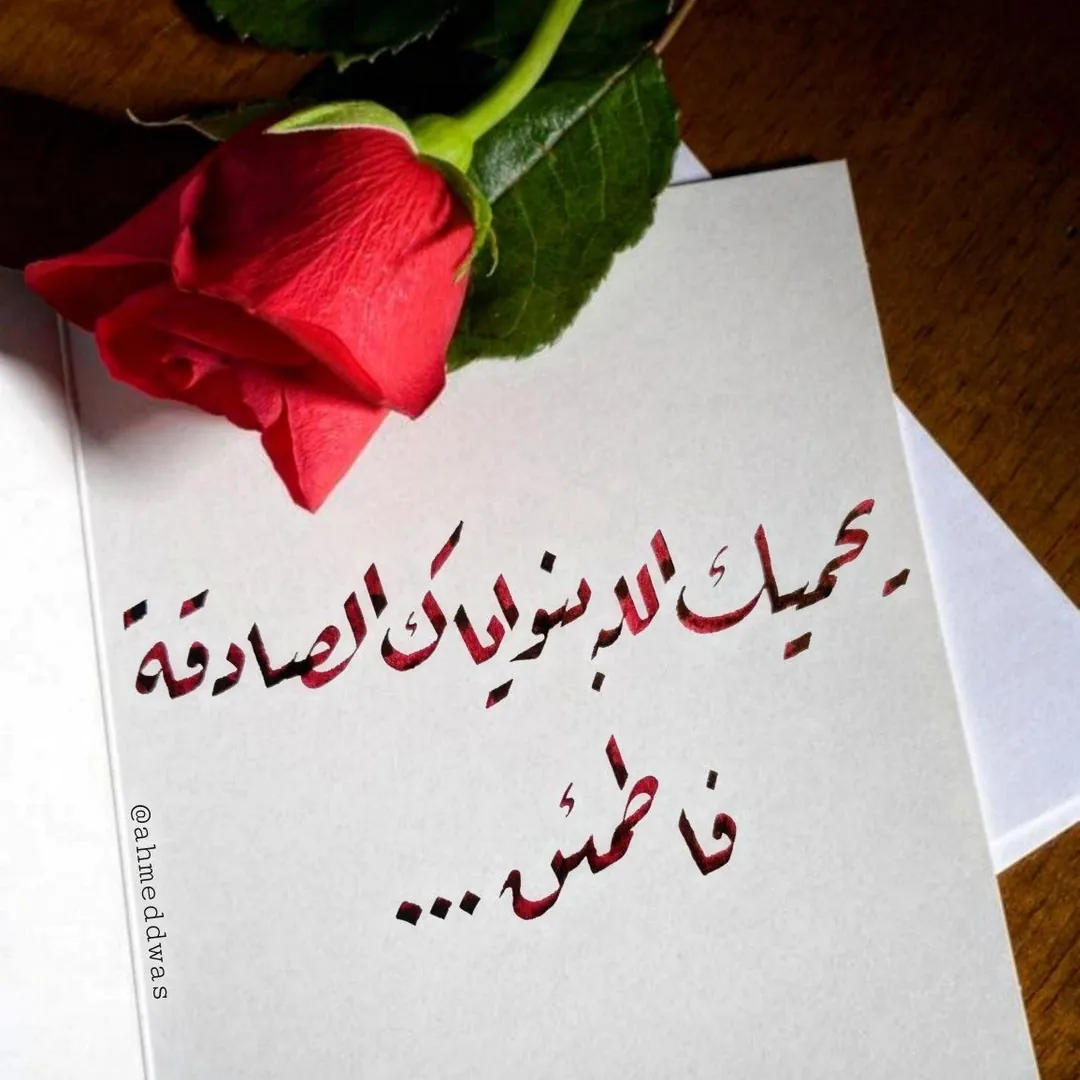 يحميك الله بنواياك الصادقة
فاطمئن...
@ahmeddwas